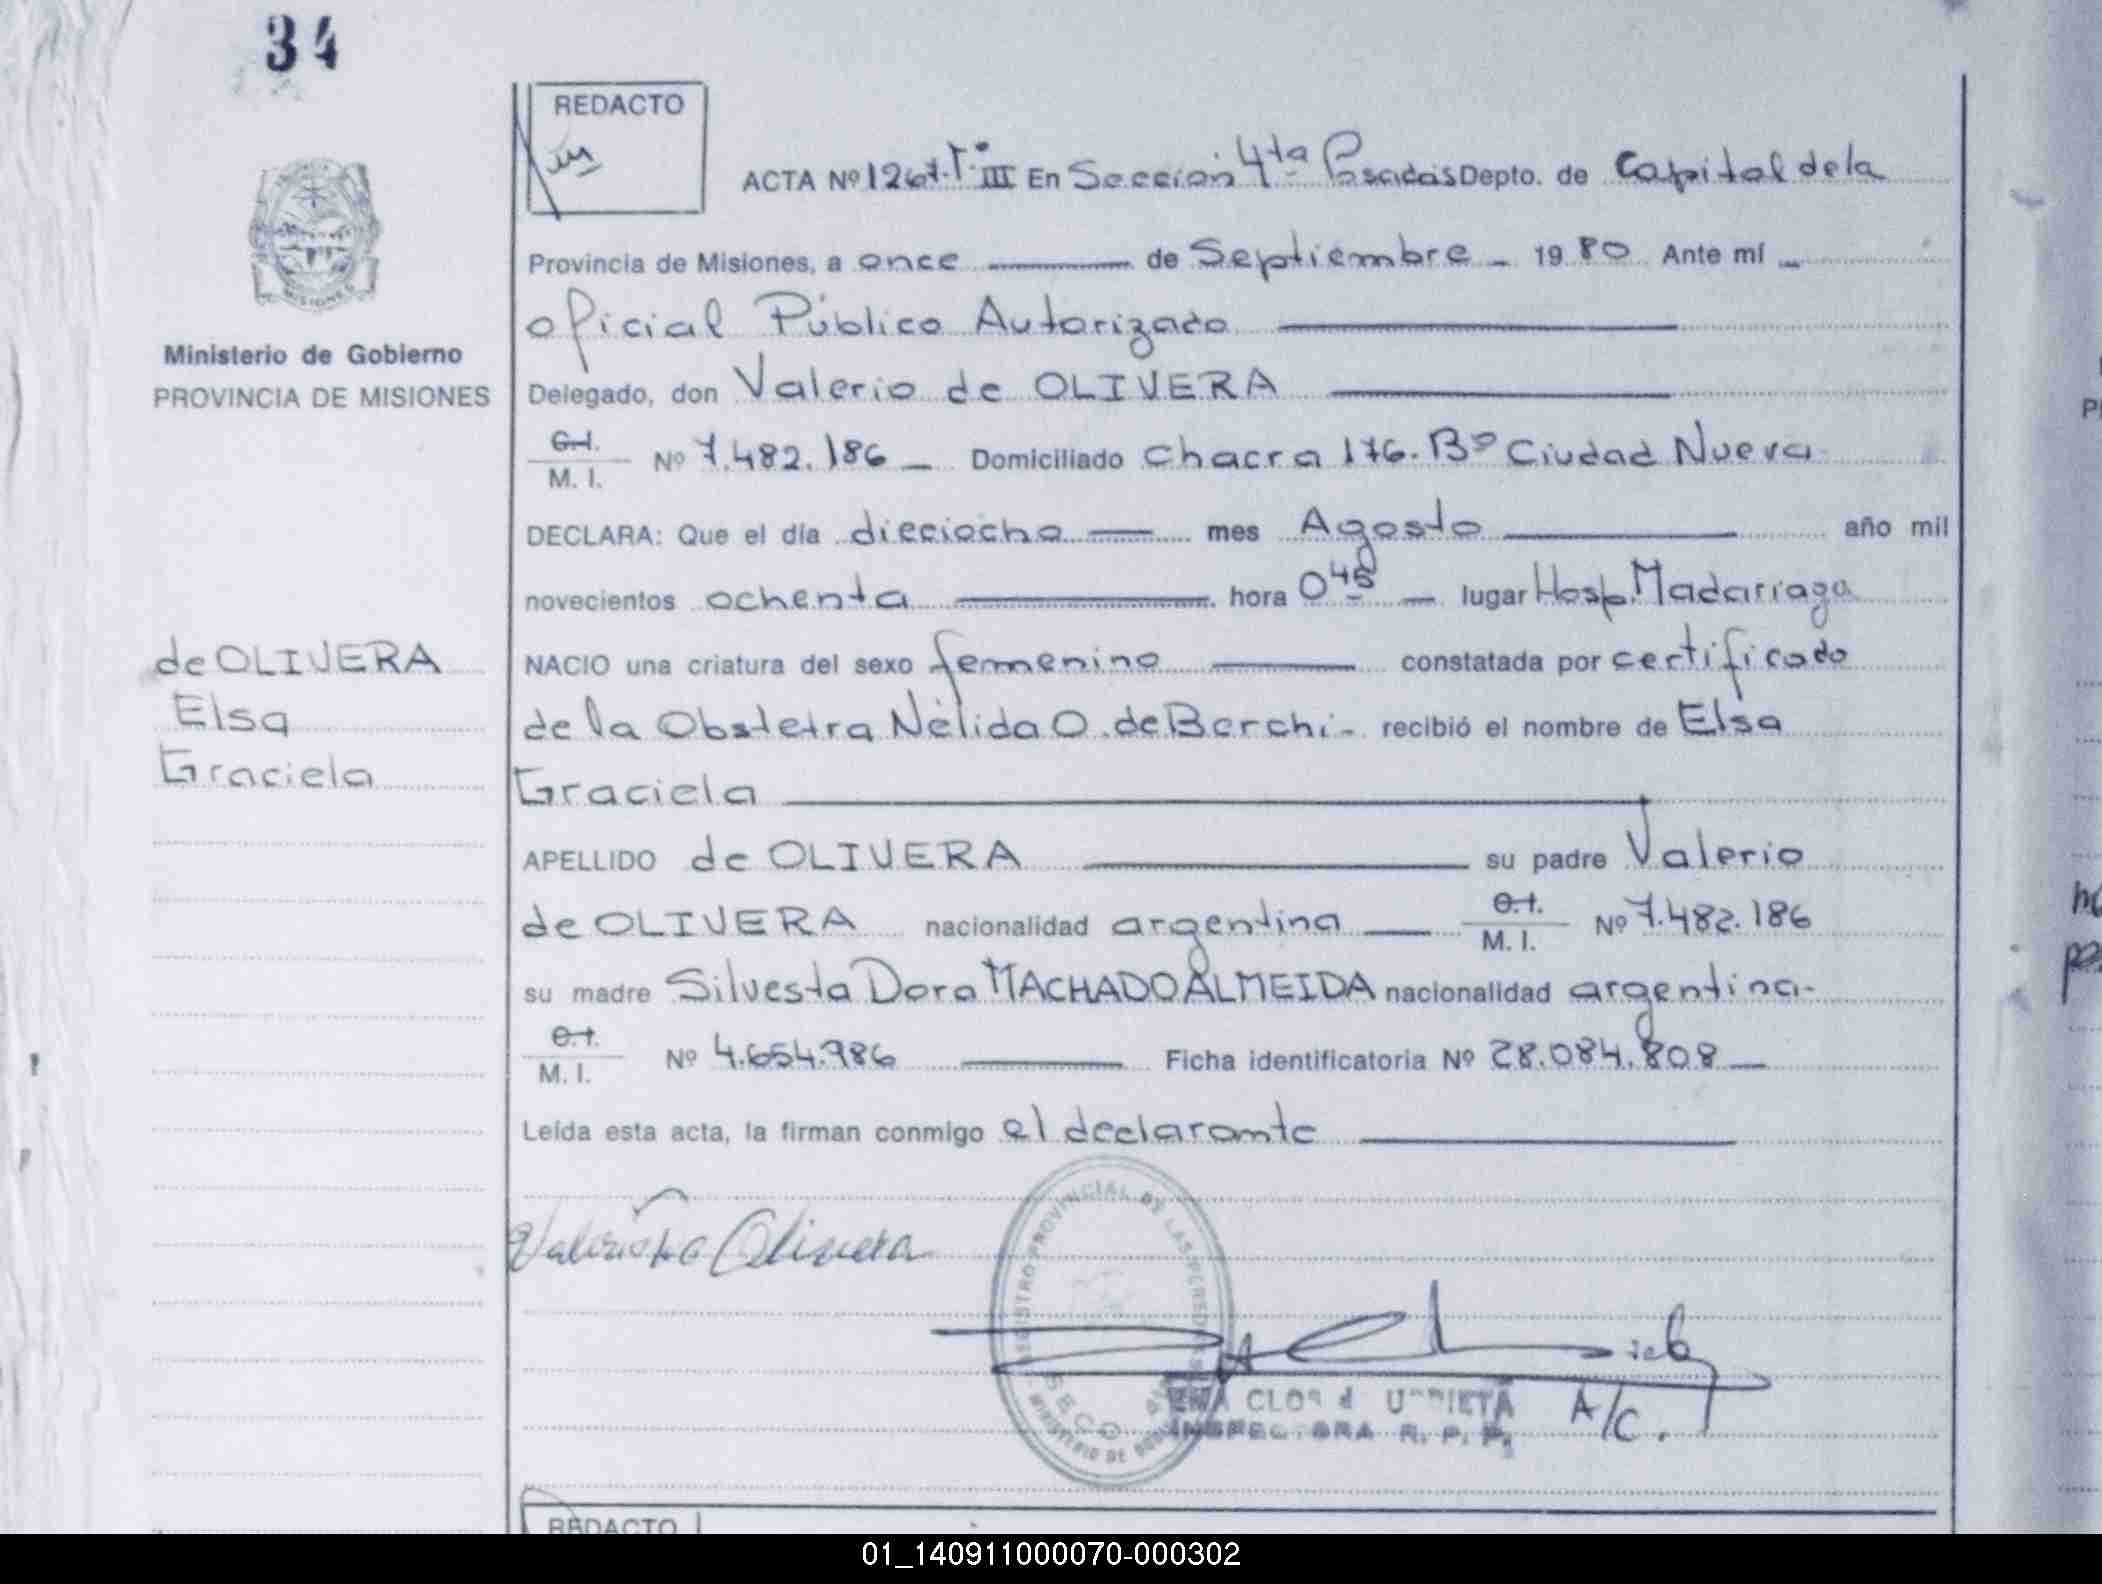 34
REDACTO
ACTA Nº 1267. Tº III En Sección 4ta Posadas Depto. de Capital de la
Provincia de Misiones, a once de Septiembre 1980 Ante mí
oficial Público Autorizado
Ministerio de Gobierno
PROVINCIA DE MISIONES
Delegado, don Valerio de OLIVERA
C.I.
M. I. Nº 7.482.186 Domiciliado chacra 176. Bº Ciudad Nueva
DECLARA: Que el día dieciocho mes Agosto año mil
novecientos ochenta hora 0 45 lugar Hosp. Madariaga
de OLIVERA
Elsa
Graciela
NACIO una criatura del sexo femenino constatada por certificado
de la Obstetra Nélida O. de Berchi- recibió el nombre de Elsa
Graciela
APELLIDO de OLIVERA su padre Valerio
de OLIVERA nacionalidad argentina C.I. M. I. Nº 7.482.186
su madre Silvesta Dora MACHADO ALMEIDA nacionalidad argentina-
C.I.
M. I. Nº 4.654.986 Ficha identificatoria Nº 28.084.808
Leída esta acta, la firman conmigo el declarante
Valerio de Olivera
REGISTRO PROVINCIAL DE LAS PERSONAS
MINISTERIO DE
INSPECTORA R. P. P.
A/C.
REDACTO
01_140911000070-000302